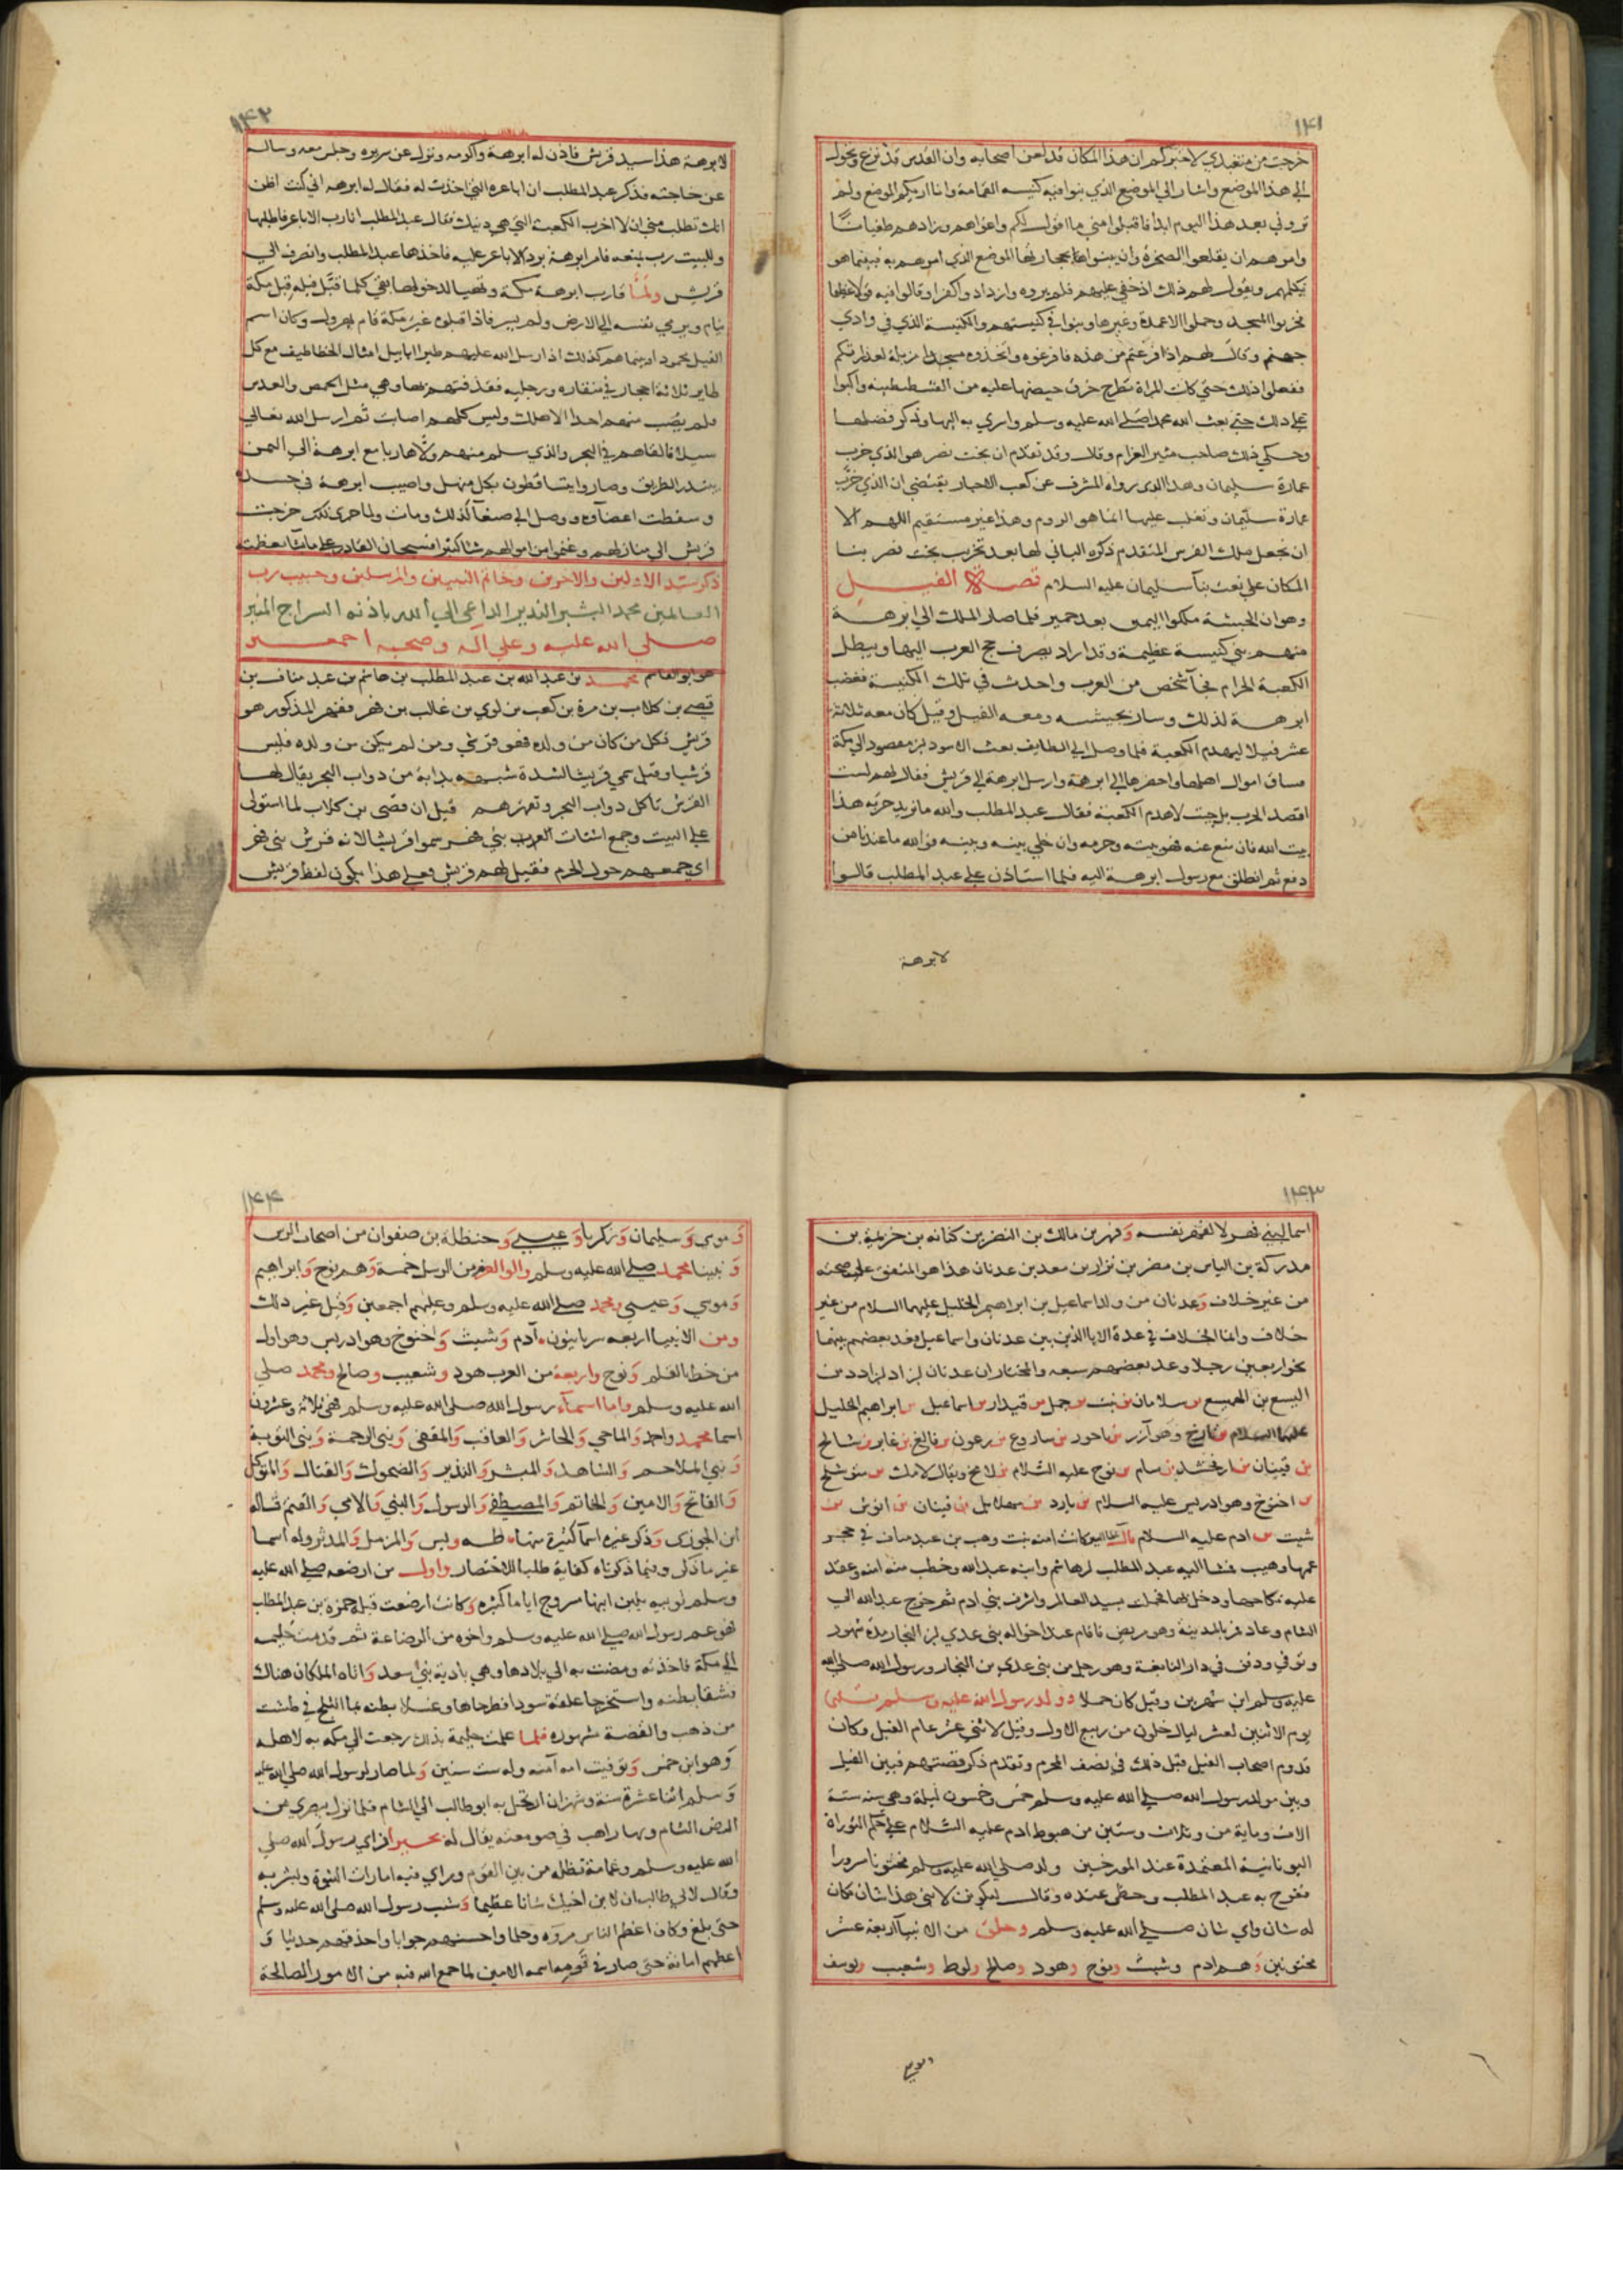 ١٤١
خرجت من متعبدي لاخبركم ان هذا المكان قد لعن اصحابه وان القدس قد نزع وتحول
الي هذا الموضع واشار الي الموضع الذي بنوا فيه كنيسه القمامة وانا اريكم الموضع ولم
تروني بعد هذا اليوم ابدا فاقبلوا مني ما اقول لكم واغواهم وزادهم طغيانا
وامرهم ان يقلعوا الصخرة وان يبنوا بحجارتها الموضع الذي امرهم به فبينما هو
يكلمهم ويقول لهم ذلك اذ خفي عليهم فلم يروه وازدادوا كفرا وقالوا فيه قولا عظيما
فخربوا المسجد وحملوا الاعمدة وغيرها وبنوا في كنيستهم والكنيسة الذي في وادي
جهنم وقال لهم اذا فرغتم من هذه فافرغوه واتخذوه مزبلة لعذرتكم
ففعلوا ذلك حتي كانت المراة تطرح خرق حيضها عليه من القسطنطينيه واكبوا
علي ذلك حتي بعث الله محمدا صلي الله عليه وسلم واسري به اليها وذكر فضلها
وحكي ذلك صاحب مثير الغرام وقال وقد تقدم ان بخت نصر هو الذي خرب
عمارة سليمان وهذا الذي رواه المشرف عن كعب الاحبار يقتضي ان الذي خرب
عمارة سليمان وتغلب عليها انما هو الروم وهذا غير مستقيم اللهم الا
ان نجعل ملك الفرس المتقدم ذكره الباني لها بعد تخريب بخت نصر بنا
المكان علي نعت بنآ سليمان عليه السلام قصة الفيل
وهو ان الحبشة ملكوا اليمن بعد حمير فلما صار الملك الي ابرهة
منهم بني كنيسة عظيمة وقد اراد يصرف حج العرب اليها ويبطل
الكعبة الحرام فجآ شخص من العرب واحدث في تلك الكنيسة فغضب
ابرهة لذلك وسار بجيشه ومعه الفيل وقيل كان معه ثلاثة
عشر فيلا ليهدم الكعبة فلما وصل الي الطايف بعث الاسود بن مقصود الي مكة
فساق اموال اهلها واحضرها الي ابرهة وارسل ابرهة الي قريش فقال لهم لست
اقصد الحرب بل جيت لاهدم الكعبة فقال عبد المطلب والله ما نريد حربه هذا
بيت الله فان منع عنه فهو بيته وحرمه وان خلي بينه وبينه فوالله ما عندنا من
دفع ثم انطلق مع رسول ابرهة اليه فلما استاذن علي عبد المطلب قالوا
لابرهة
١٤٢
لابرهة هذا سيد قريش فاذن له ابرهة واكرمه ونزل عن سريره وجلس معه وساله
عن حاجته فذكر عبد المطلب ان اباعره التي اخذت له فقال له ابرهه اني كنت اظن
انك تطلب مني ان لا اخرب الكعبة التي هي دينك فقال عبد المطلب انا رب الاباعر فاطلبها
وللبيت رب يمنعه فامر ابرهة برد الاباعر عليه فاخذها عبد المطلب وانصرف الي
قريش ولما قارب ابرهة مكة وتهيا لدخولها بقي كلما قبل فيله قبل مكة
ينام ويرمي نفسه الي الارض ولم يسر فاذا قبلوه غير مكة قام يهرول وكان اسم
الفيل محمود اوبينما هم كذلك اذ ارسل الله عليهم طيرا ابابيل امثال الخطاطيف مع كل
طاير ثلاثة احجار في منقاره ورجليه فقذفتهم بها وهي مثل الحمص والعدس
فلم يصب منهم احدا الا هلك وليس كلهم اصابت ثم ارسل الله تعالي
سيلا فالقاهم في البحر والذي سلم منهم ولي هاربا مع ابرهة الي اليمن
يبتدر الطريق وصاروا يتساقطون بكل منهل واصيب ابرهة في جسده
وسقطت اعضآوه ووصل الي صنعآ كذلك ومات ولما جري ذلك خرجت
قريش الي منازلهم وغنموا من اموالهم شيا كثيرا فسبحان القادر علي ما يشا بعظمته
ذكر سيد الاولين والاخرين وخاتم النبيين والمرسلين وحبيب رب
العالمين محمد البشير النذير الداعي الي الله باذنه السراج المنير
صلي الله عليه وعلي اله وصحبه اجمعين
هو ابو القاسم محمد بن عبد الله بن عبد المطلب بن هاشم بن عبد مناف بن
قصي بن كلاب بن مرة بن كعب بن لوي بن غالب بن فهر ففهر المذكور هو
قريش فكل من كان من ولده فهو قرشي ومن لم يكن من ولده فليس
قرشيا وقيل سمي قريشا لشدة شبهه بدابة من دواب البحر يقال لها
القرش تاكل دواب البحر وتقهرهم قيل ان قصي بن كلاب لما استولي
علي البيت وجمع اشتات العرب بني فهر سموا قريشا لانه قرش بني فهر
اي جمعهم حول الحرم فقيل لهم قريش وعلي هذا يكون لفظ قريش
١٤٣
اسما لبني فهر لا لفهر نفسه وفهر بن مالك بن النضر بن كنانه بن خزيمة بن
مدركة بن الياس بن مضر بن نزار بن معد بن عدنان هذا هو المتفق علي صحته
من غير خلاف وعدنان من ولد اسماعيل بن ابراهيم الخليل عليهما السلام من غير
خلاف وانما الخلاف في عدة الابا الذين بين عدنان واسماعيل فعد بعضهم بينهما
نحو اربعين رجلا وعد بعضهم سبعه والمختار ان عدنان بن اد بن ادد بن
اليسع بن الهميسع بن سلامان بن نبت بن حمل بن قيدار بن اسماعيل بن ابراهيم الخليل
عليهما السلام بن تارخ وهو آزر بن ناحور بن ساروع بن رعون بن فالغ بن عابر بن شالخ
بن قينان بن ارفخشد بن سام بن نوح عليه السلام بن لامخ ويقال لامك بن متوشلخ
بن اخنوخ وهو ادريس عليه السلام بن يارد بن مهلايل بن قينان بن انوش بن
شيث بن ادم عليه السلام كانت امنه بنت وهب بن عبد مناف في حجر
عمها وهيب فمشا اليه عبد المطلب بن هاشم وابنه عبد الله وخطب منه امنه وعقد
عليه نكاحها ودخل بها فحملت بسيد العالم واشرف بني ادم ثم خرج عبد الله الي
الشام وعاد فمر بالمدينة وهو مريض فاقام عند اخواله بني عدي بن النجار مدة شهور
وتوفي ودفن في دار النابغة وهو رجل من بني عدي بن النجار ورسول الله صلي الله
عليه وسلم ابن شهرين وقيل كان حملا وولد رسول الله عليه وسلم
يوم الاثنين لعشر ليال خلون من ربيع الاول وقيل لاثني عشر عام الفيل وكان
قدوم اصحاب الفيل قبل ذلك في نصف المحرم وتقدم ذكر قصتهم فبين الفيل
وبين مولد رسول الله صلي الله عليه وسلم خمس وخمسون ليلة وهي سنه ستة
الاف وماية من وثلاث وستين من هبوط ادم عليه السلام علي حكم التوراة
اليونانية المعتمدة عند المورخين ولد صلي الله عليه وسلم مختونا مسرورا
ففرح به عبد المطلب وحظي عنده وقال ليكونن لابني هذا شان فكان
له شان واي شان صلي الله عليه وسلم وخلق من الانبيآ اربعة عشر
مختونين وهم ادم وشيث ونوح وهود وصالح ولوط وشعيب ويوسف
وموسي
١٤٤
وموسي وسليمان وزكريا وعيسي وحنظلة بن صفوان من اصحاب الرس
ونبينا محمد صلي الله عليه وسلم واولوا العزم من الرسل خمسة وهم نوح وابراهيم
وموسي وعيسي ومحمد صلي الله عليه وسلم وعليهم اجمعين وقيل غير ذلك
ومن الانبيا اربعه سريانيون آدم وشيث واخنوخ وهو ادريس وهو اول
من خط بالقلم ونوح واربعة من العرب هود وشعيب وصالح ومحمد صلي
الله عليه وسلم واما اسمآء رسول الله صلي الله عليه وسلم فهي ثلاثة وعشرون
اسما محمد واحمد والماحي والحاشر والعاقب والمقفي ونبي الرحمة ونبي التوبة
ونبي الملاحم والشاهد والمبشر والنذير والضحوك والقتال والمتوكل
والفاتح والامين والخاتم والمصطفي والرسول والنبي والامي والقثم قاله
ابن الجوزي وذكر غيره اسمآ كثيرة منها طه ويس والمزمل والمدثر وله اسما
غير ما ذكر وفيما ذكرناه كفاية طلبا للاختصار واول من ارضعه صلي الله عليه
وسلم ثويبه بلبن ابنها مسروح اياما كثيره وكانت ارضعت قبله حمزة بن عبد المطلب
فهو عم رسول الله صلي الله عليه وسلم واخوه من الرضاعة ثم قدمت حليمه
الي مكة فاخذته ومضت به الي بلادها وهي بادية بني سعد واتاه الملكان هناك
فشقا بطنه واستخرجا علقة سودا فطرحاها وغسلا بطنه بمآ الثلج في طشت
من ذهب والقصة مشهوره فلما علمت حليمة بذلك رجعت الي مكه به لاهله
وهو ابن خمس وتوفيت امه آمنه وله ست سنين ولما صار لرسول الله صلي الله عليه
وسلم اثنا عشرة سنة وشهران ارتحل به ابو طالب الي الشام فلما نزل بصري من
ارض الشام وبها راهب في صومعته يقال له بحيرا فراي رسول الله صلي
الله عليه وسلم وغمامة تظله من بين القوم وراي فيه امارات النبوة وبشر به
وقال لابي طالب ان لابن اخيك شانا عظيما وشب رسول الله صلي الله عليه وسلم
حتي بلغ وكان اعظم الناس مروه وحلما واحسنهم جوابا واصدقهم حديثا و
اعظمهم امانة حتي صار في قومه اسمه الامين لما جمع الله فيه من الامور الصالحة